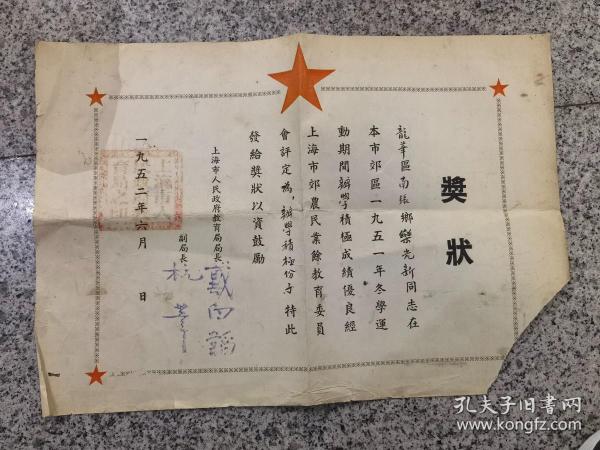 獎狀
龍華區南張鄉樂光新同志在
本市郊區一九五一年冬學運
動期間辦學積極成績優良經
上海市郊農民業餘教育委員
會評定為，辦學積極份子特此
發給獎狀以資鼓勵
上海市人民政府教育局局長
戴白韜
副局長
杭葦
一九五二年六月 日
孔夫子旧書网
www.kongfz.com